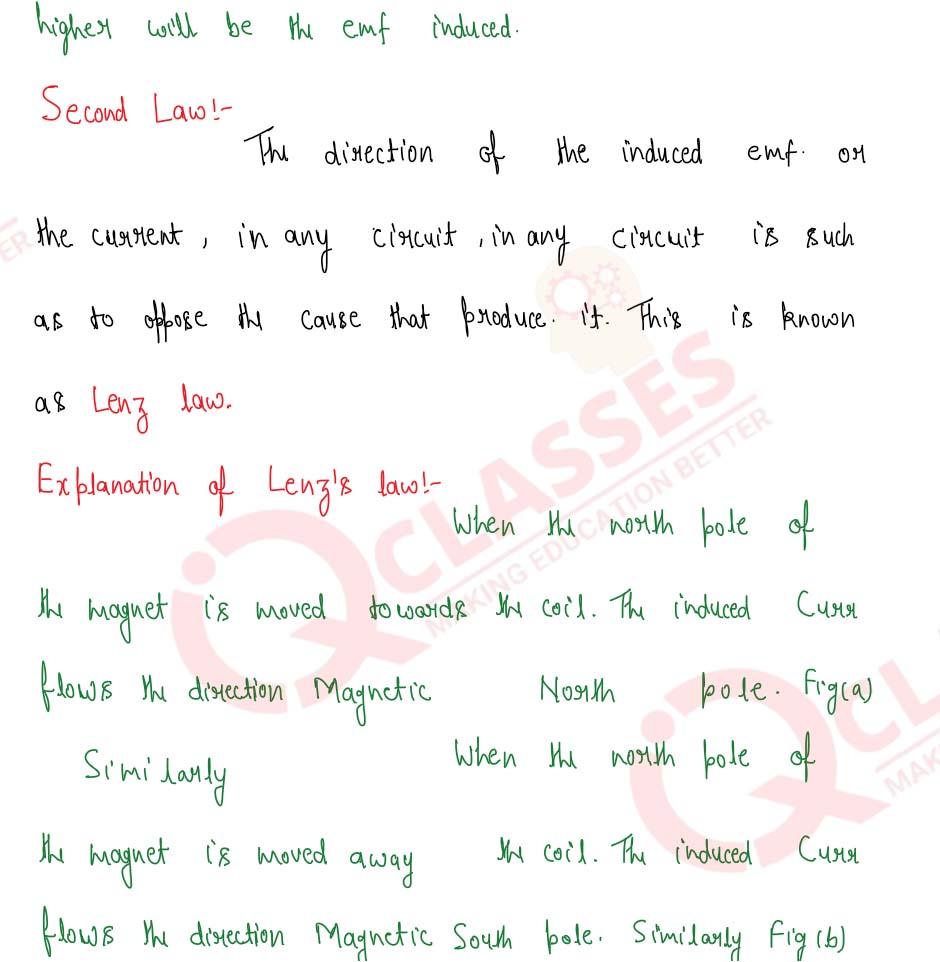 higher will be the emf induced.
Second Law:-
The direction of the induced emf. or
the current, in any circuit, in any circuit is such
as to oppose the cause that produce. it. This is known
as Lenz law.
Explanation of Lenz's law:-
When the north pole of
the magnet is moved towards the coil. The induced Curr
flows the direction Magnetic North pole. Fig(a)
Similarly When the north pole of
the magnet is moved away the coil. The induced Curr
flows the direction Magnetic South pole. Similarly Fig (b)
IQ CLASSES
MAKING EDUCATION BETTER
IQ CL
MAK
ER